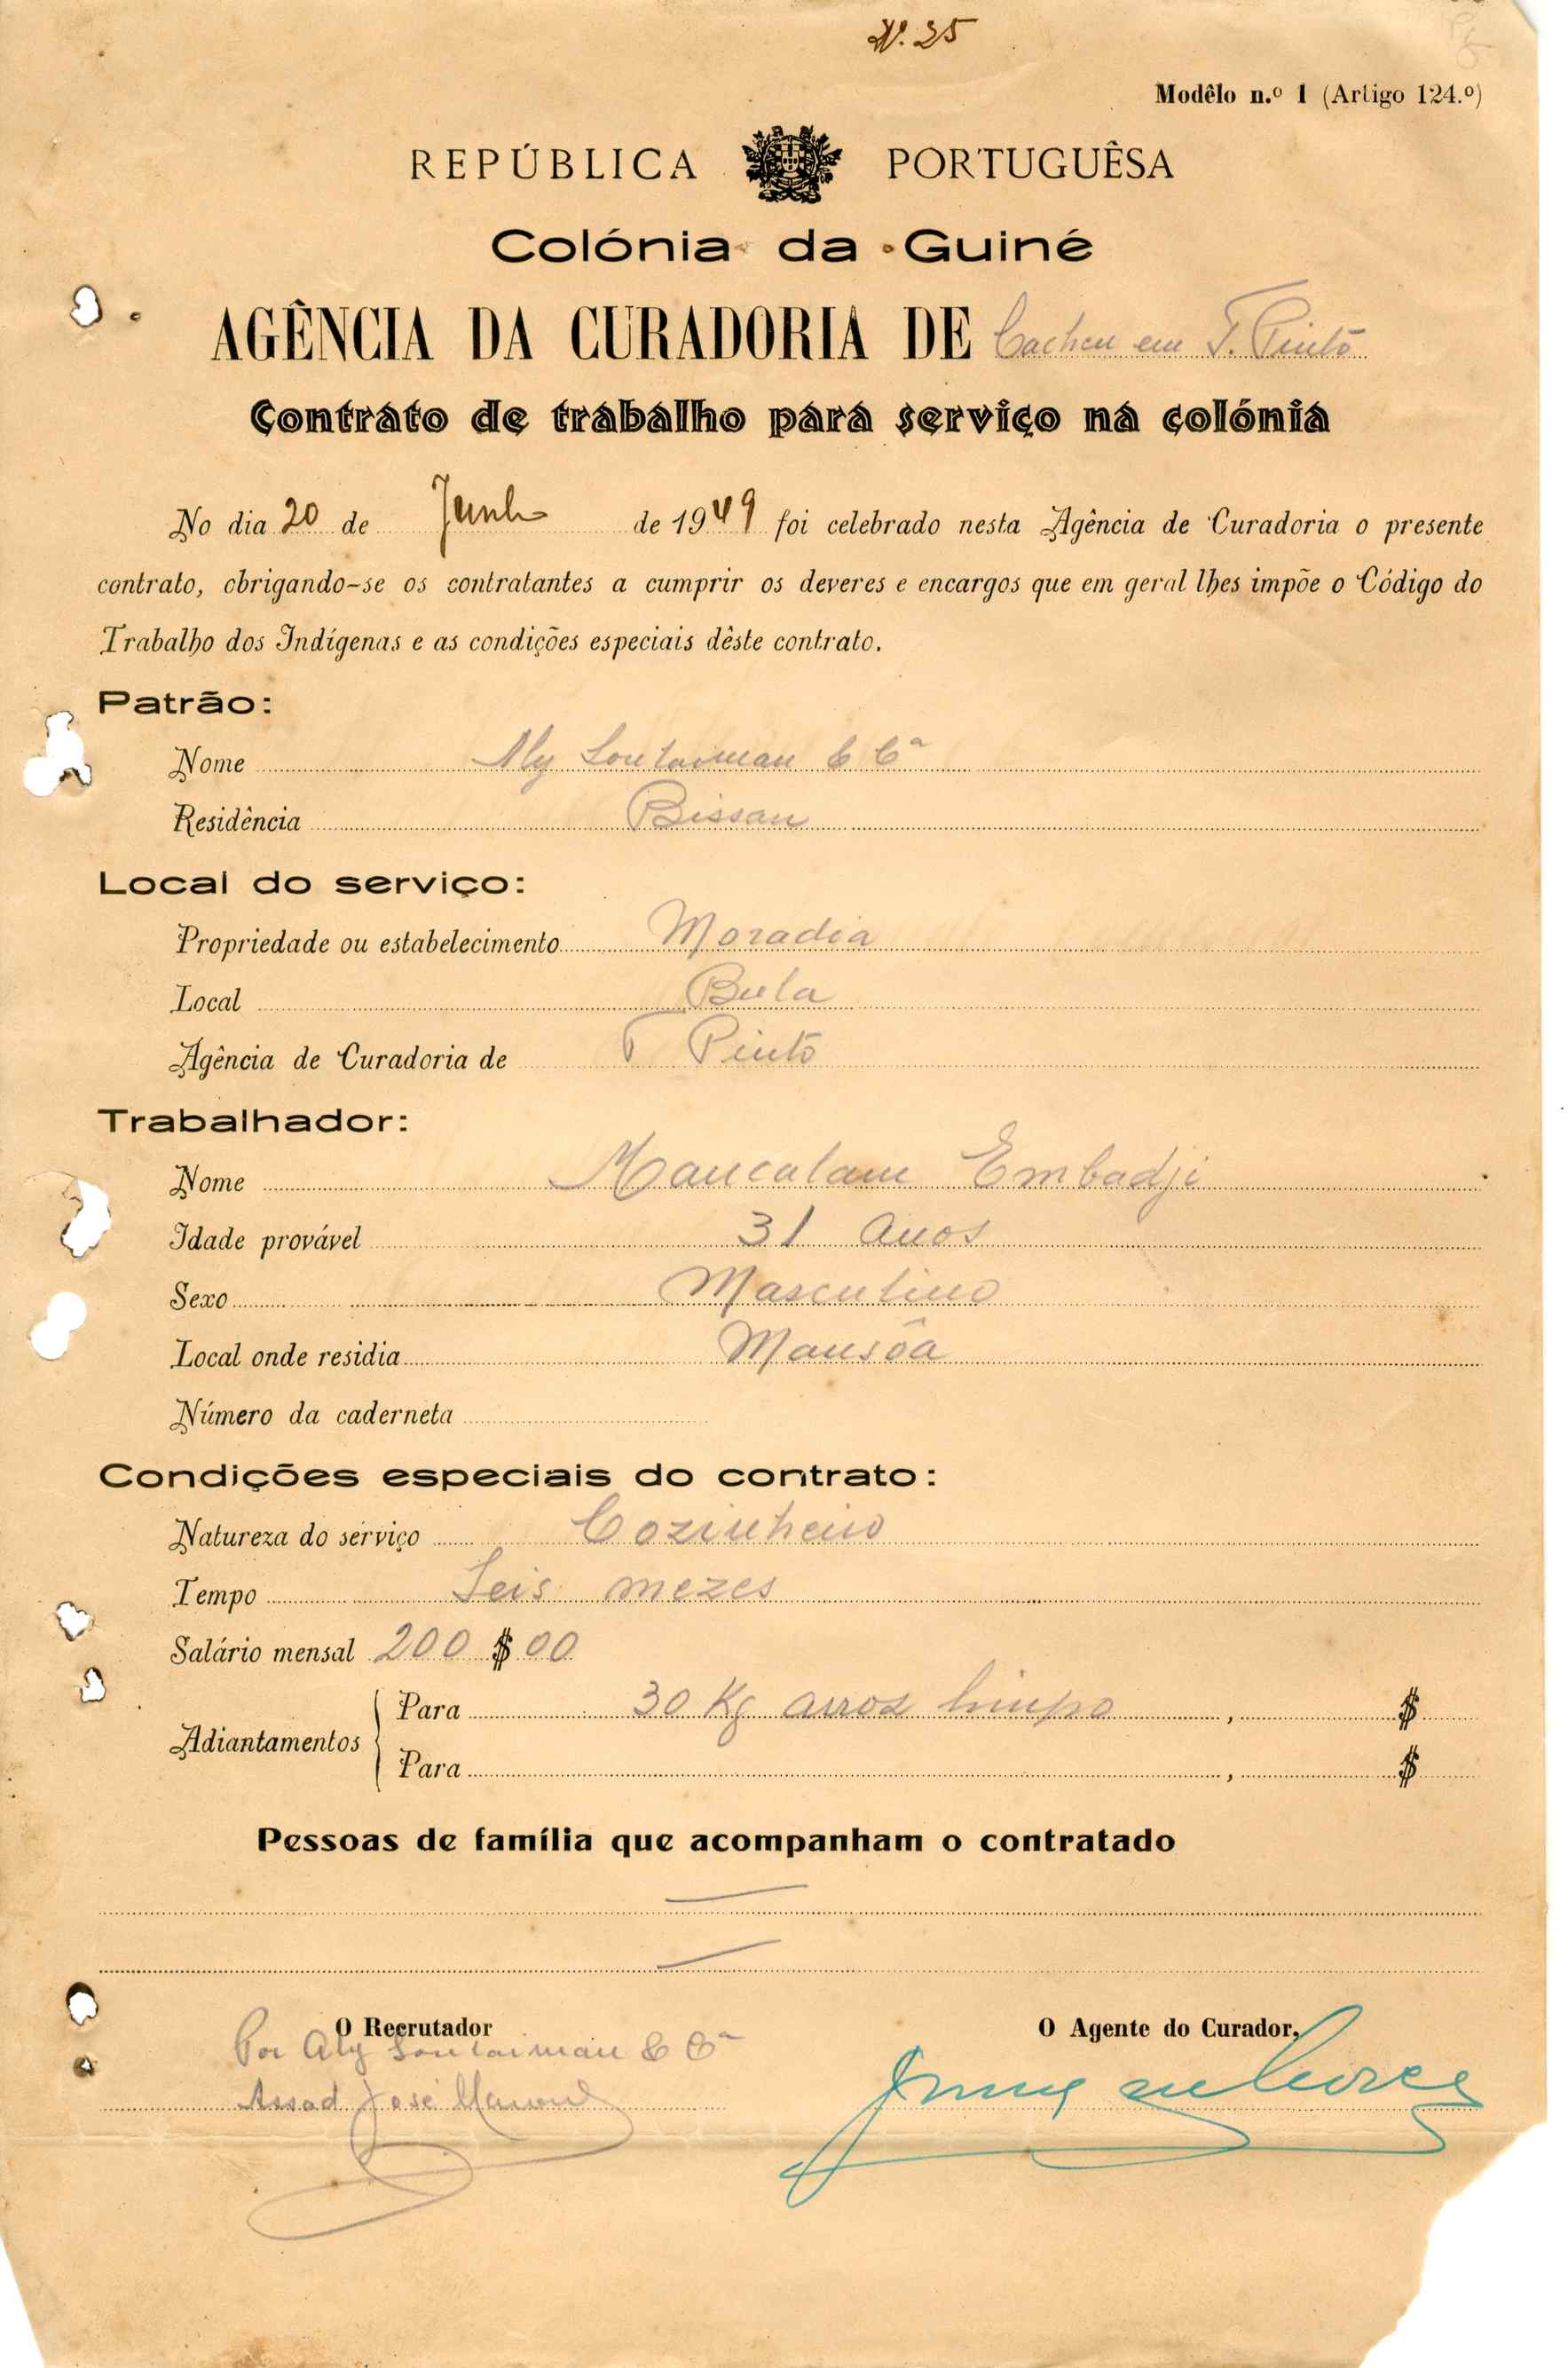 Nº. 25
Modêlo n.º 1 (Artigo 124.º)
REPÚBLICA PORTUGUÊSA
Colónia da Guiné
AGÊNCIA DA CURADORIA DE Cacheu em T. Pinto
Contrato de trabalho para serviço na colónia
No dia 20 de Junho de 1949 foi celebrado nesta Agência de Curadoria o presente
contrato, obrigando-se os contratantes a cumprir os deveres e encargos que em geral lhes impõe o Código do
Trabalho dos Indígenas e as condições especiais dêste contrato.
Patrão:
Nome Aly Souleiman & Cª
Residência Bissau
Local do serviço:
Propriedade ou estabelecimento Moradia
Local Bula
Agência de Curadoria de T Pinto
Trabalhador:
Nome Mancalam Embadji
Idade provável 31 anos
Sexo Masculino
Local onde residia Mansôa
Número da caderneta
Condições especiais do contrato:
Natureza do serviço Cozinheiro
Tempo Seis mezes
Salário mensal 200 $ 00
Adiantamentos
Para 30 Kg arroz limpo , $
Para , $
Pessoas de família que acompanham o contratado
O Recrutador
O Agente do Curador,
Por Aly Souleiman & Cª
Assad José